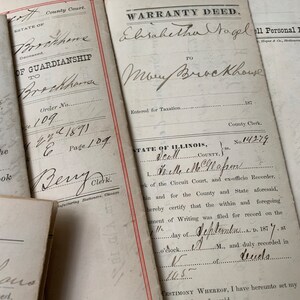 County Court,
ESTATE OF
Brockhouse
OF GUARDIANSHIP
TO
Brockhouse
Order No.
109
22nd 1871
6 Page 109
Berry Clerk.
WARRANTY DEED.
Elizabetha Nagel
TO
Mary Brockhouse
Entered for Taxation 187
County Clerk.
STATE OF ILLINOIS,
Scott COUNTY, No. 14279
I,
of the Circuit Court, and ex-officio Recorder,
and for the County and State aforesaid,
hereby certify that the within and foregoing
Instrument of Writing was filed for record on the
day of September A. D. 1877, at
o'clock M. and duly recorded in
Deeds
105
TESTIMONY WHEREOF, I have hereunto set my
ll Personal